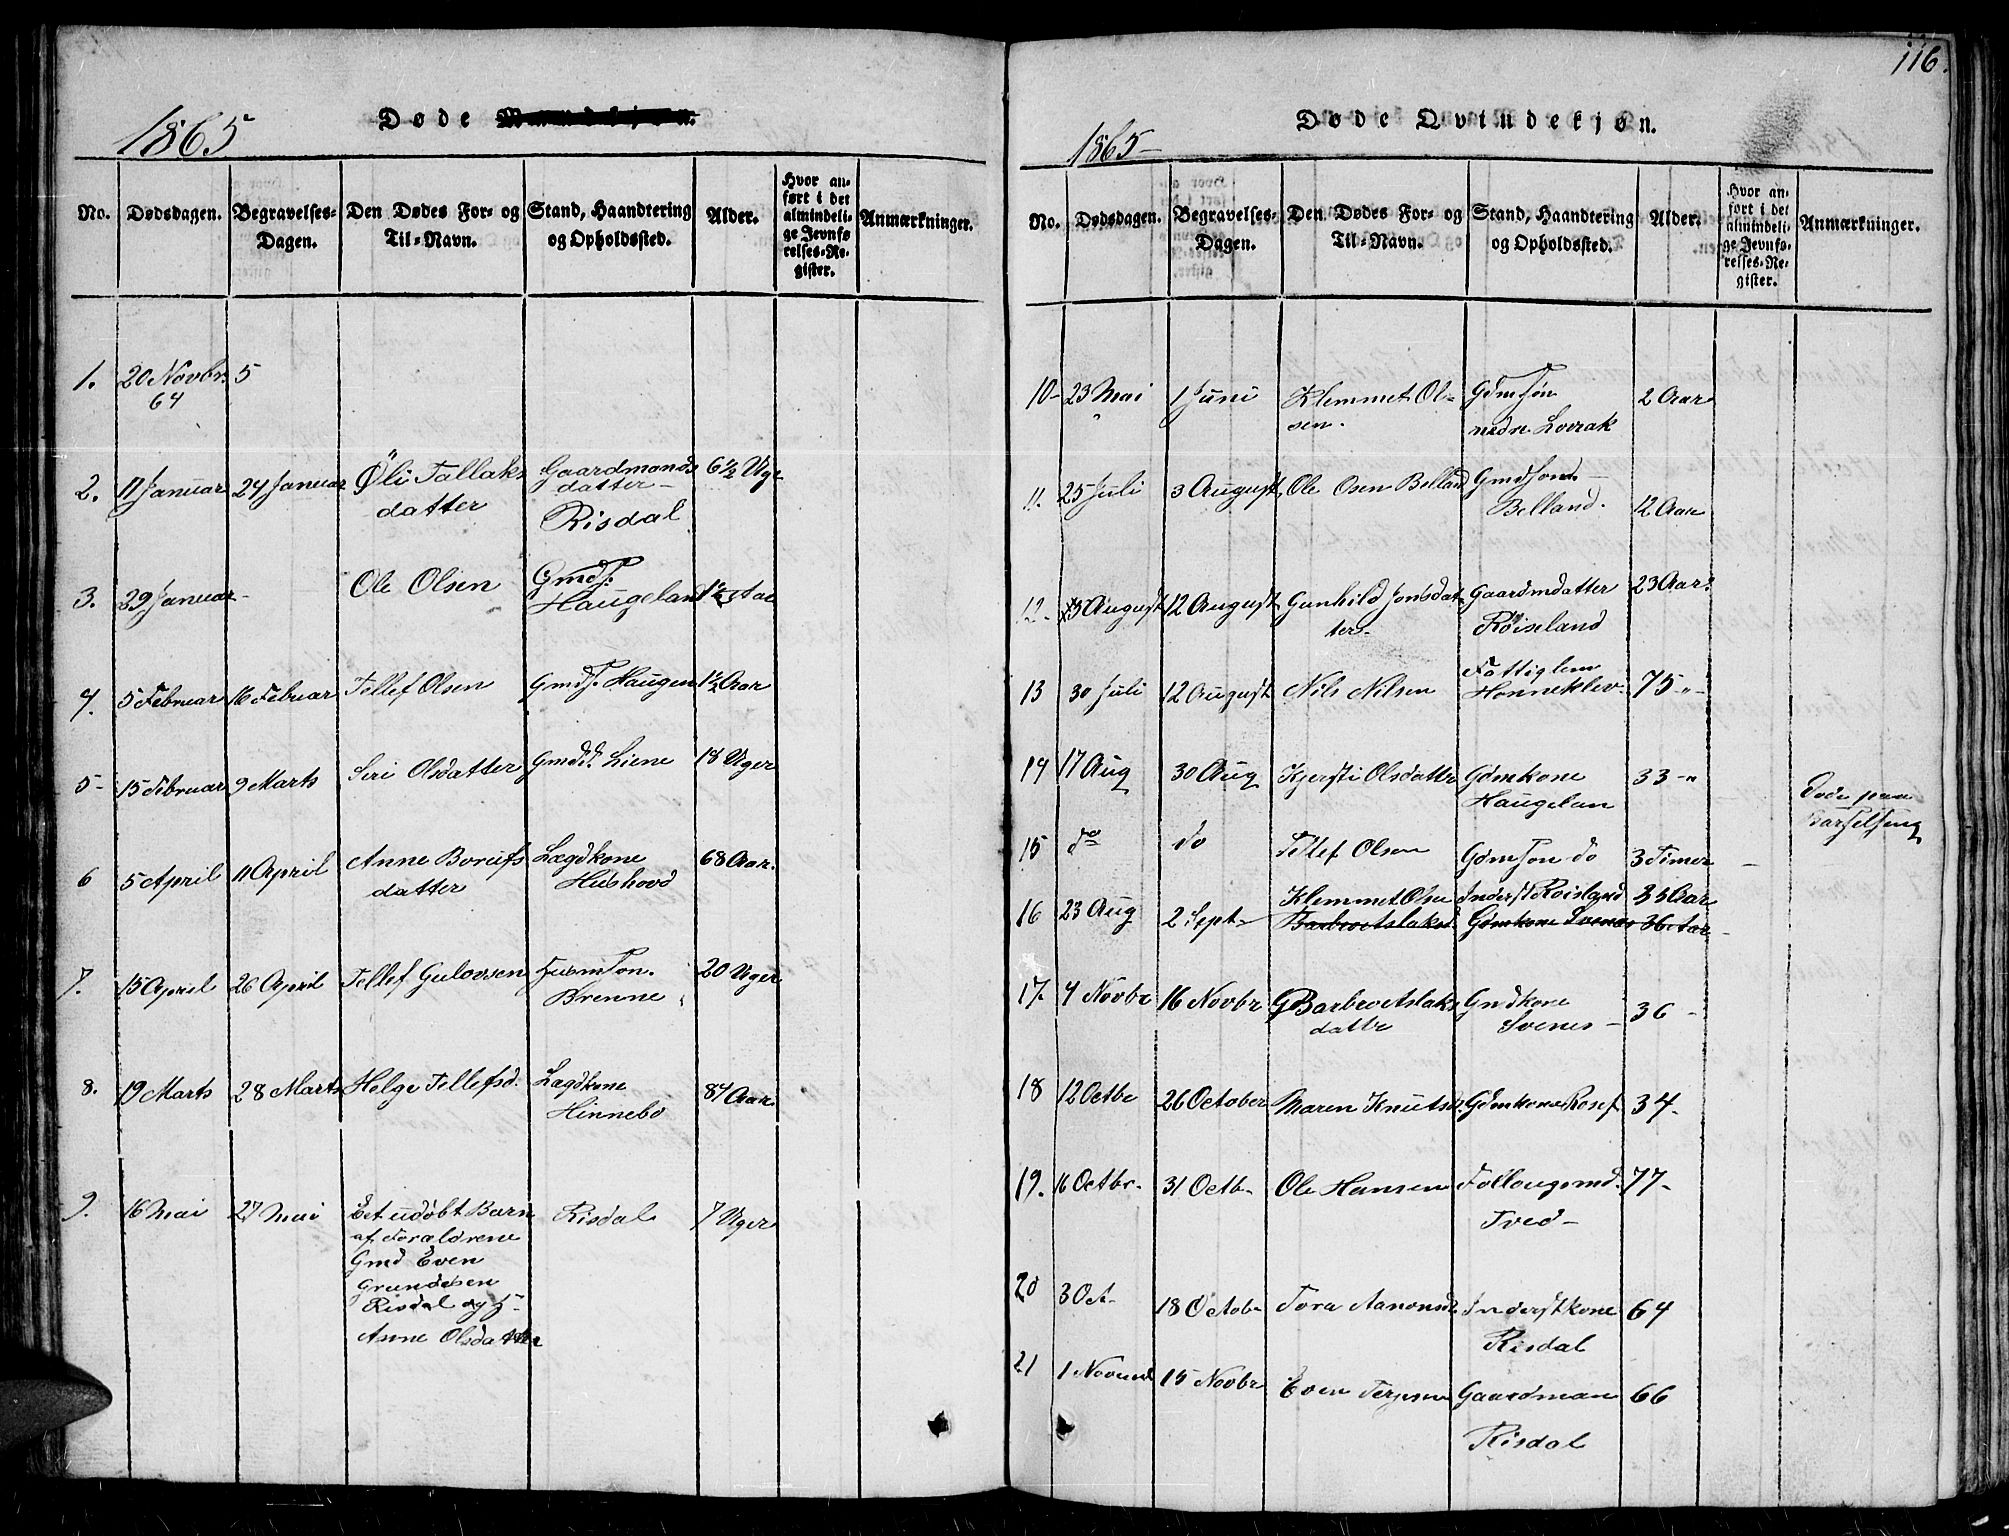 116.
1865
Døde Mandkjøn.
No. Dødsdagen. Begravelses-Dagen. Den Dødes For- og Til-Navn. Stand, Haandtering og Opholdssted. Alder. Hvor anført i det almindelige Jevnførelses-Register. Anmærkninger.
1. 20 Novbr. 5
64
2. 11 Januar 24 Januar Øli Tallaks Gaardmands 6½ Uge
datter datter
Risdal
3. 29 Januar Ole Olsen Gmds. 1½ Aar
Haugeland
4. 5 Februar 16 Februar Tellef Olsen Gmds. Haugen 1½ Aar
5 15 Februar 9 Marts Siri Olsdatter Gmdd. Liene 18 Uger
6 5 April 11 April Anne Borufs Lægdkone 68 Aar.
datter Hushovd
7. 15 April 26 April Tellef Gulovsen Husmson. 20 Uger
Brenne
8. 19 Marts 28 Marts Helge Tellefsd. Lægdkone 84 Aar.
Hinnebo
9. 16 Mai 27 Mai Et udøbt Barn Risdal 7 Uger
af Forældrene
Gmd Even
Grundesen
Risdal og H.
Anne Olsdatter
1865
Døde Qvindekjøn.
No. Dødsdagen. Begravelses-Dagen. Den Dødes For- og Til-Navn. Stand, Haandtering og Opholdssted. Alder. Hvor anført i det almindelige Jevnførelses-Register. Anmærkninger.
10 23 Mai 1 Juni Klemmet Ol- Gdmsøn 2 Aar
sen. nedre Loverak
11. 25 Juli 3 August Ole Osen Belland Gmdson
Belland. 12 Aar
12. 3 August 12 August Gunhild Jonsdat- Gaardmdatter 23 Aar
ter Røiseland
13 30 Juli 12 August Nils Nilsen Fattiglem 75 "
Honneklev
14 17 Aug 30 Aug Kjersti Olsdatter Gdmkone 33 "
Haugelan Døde paa
Barselseng
15 do do Tellef Olsen Gdmson do 3 Timer
16 23 Aug 2 Sept Klemmet Olsen Inderst Røisland 35 Aar
Barbro Aslaksd. Gdmkone Svenes 36 Aar
17. 4 Novbr 16 Novbr Barbro Aslaks Gmdkone 36
datter Svenes
18 12 Octbr 26 October Maren Knutsd. Gdmkone Rosef 34
19. 16 Octbr. 31 Octb. Ole Hansen Føllougsmd. 77
Tved
20 3 Oct 18 Octob Tora Aanonsd Inderstkone 64
Risdal
21 1 Novemb 15 Novbr Even Terjesen Gaardman 66
Risdal